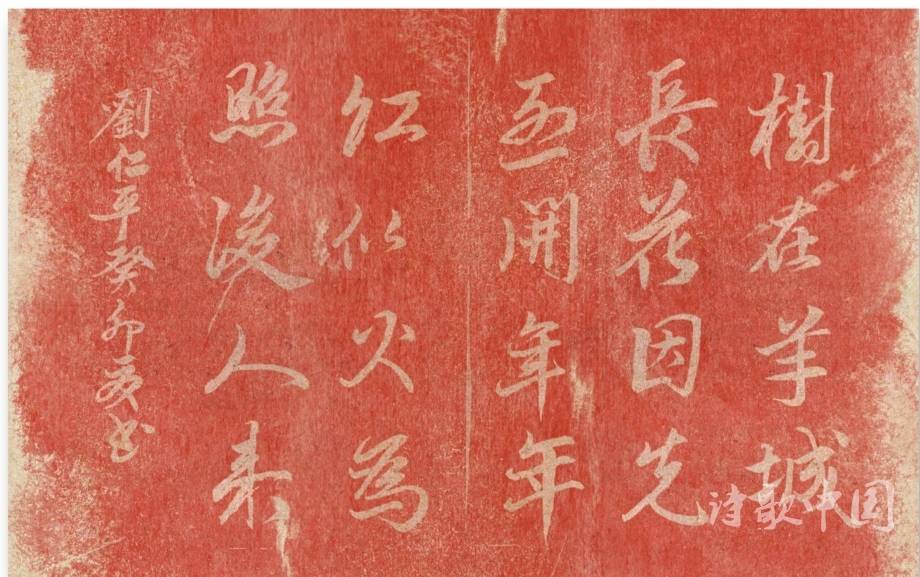 樹在羊城
長花因先
烈開年年
红似火為
照後人来
劉仁平癸卯夏书
诗歌中国